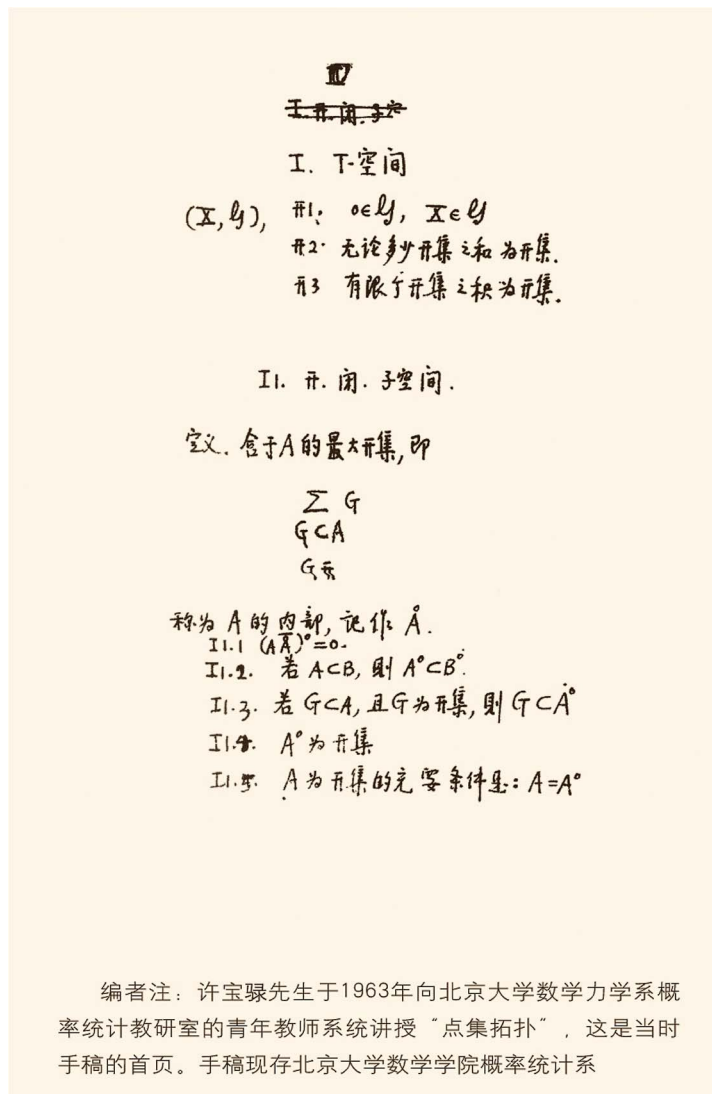 IV
I. 开. 闭. 子空
I. T-空间
(X, 𝒢), 开1: 0∈𝒢, X∈𝒢
开2. 无论多少开集之和为开集.
开3 有限个开集之积为开集.
I1. 开. 闭. 子空间.
定义. 含于A的最大开集, 即
∑ G
G⊂A
G开
称为 A 的内部, 记作 Å.
I1.1 (AĀ)°=0.
I1.2. 若 A⊂B, 则 A°⊂B°.
I1.3. 若 G⊂A, 且G为开集, 则 G⊂A°
I1.4. A°为开集
I1.5. A为开集的充要条件是: A=A°
编者注：许宝騄先生于1963年向北京大学数学力学系概
率统计教研室的青年教师系统讲授“点集拓扑”，这是当时
手稿的首页。手稿现存北京大学数学学院概率统计系